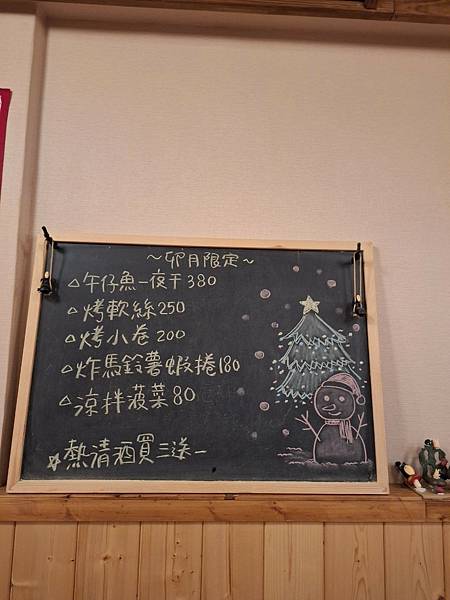 ～卯月限定～
△午仔魚一夜干380
△烤軟絲250
△烤小卷200
△炸馬鈴薯蝦捲180
△涼拌菠菜80
☆熱清酒買三送一